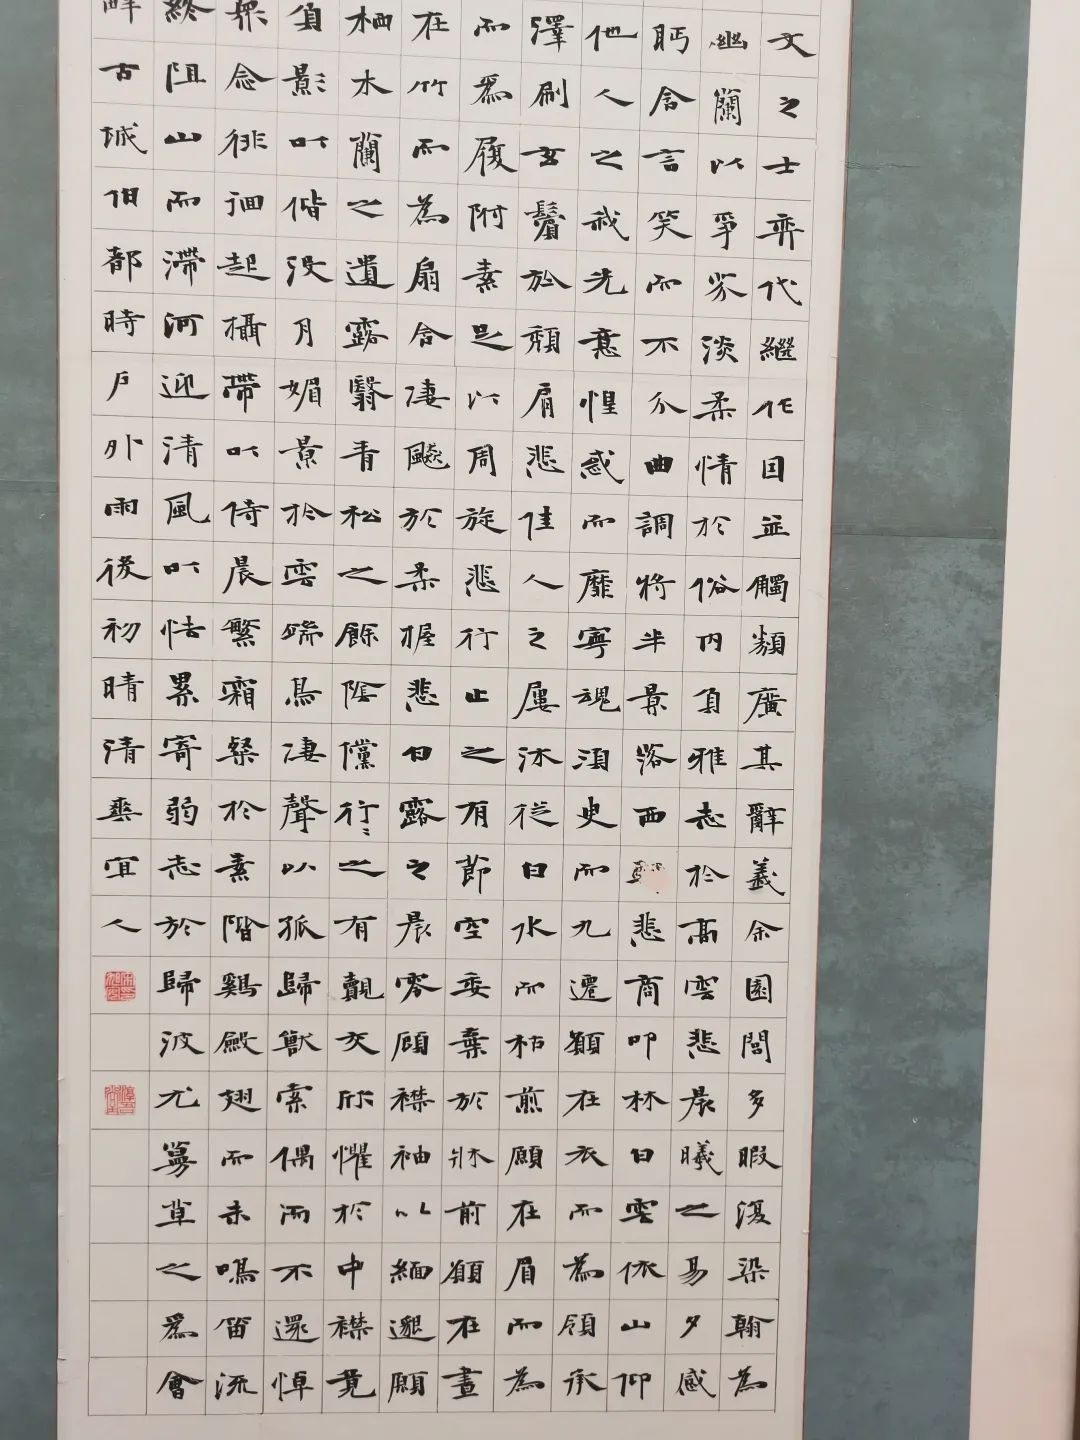 文之士弈代繼作因並觸類廣其辭義余園閭多暇復染翰為
幽蘭以爭芬淡柔情於俗內負雅志於高雲悲晨曦之易夕感
眄含言笑而不分曲調將半景落西悲商叩林白雲依山仰
他人之我先意惶惑而靡寧魂須臾而九遷願在衣而為領承
澤刷玄鬢於頹肩悲佳人之屢沐從白水而枯煎願在眉而為
而為履附素足以周旋悲行止之有節空委棄於牀前願在晝
在竹而為扇含淒飈於柔握悲白露之晨零顧襟袖以緬邈願
栖木蘭之遺露翳青松之餘陰儻行々之有覿交欣懼於中襟竟
負影以偕没月媚景於雲端鳥淒聲以孤歸獸索偶而不還悼
操念徘徊起攝帶以侍晨繁霜粲於素階鷄斂翅而未鳴笛流
終阻山而滯河迎清風以怯累寄弱志於歸波尤蔓草之為會
古城都時戶外雨後初晴清爽宜人